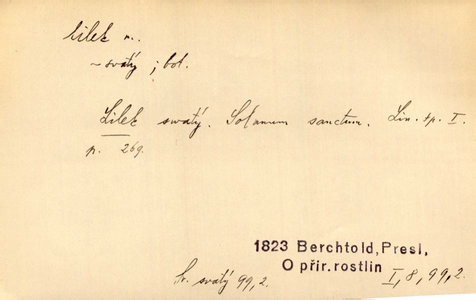 lilek m.
~ svatý ; bot.
Lilek swatý. Solanum sanctum. Lin. sp. I.
p. 269.
1823 Berchtold, Presl,
O přir. rostlin
I, 8, 99, 2.
sr. svatý 99, 2.